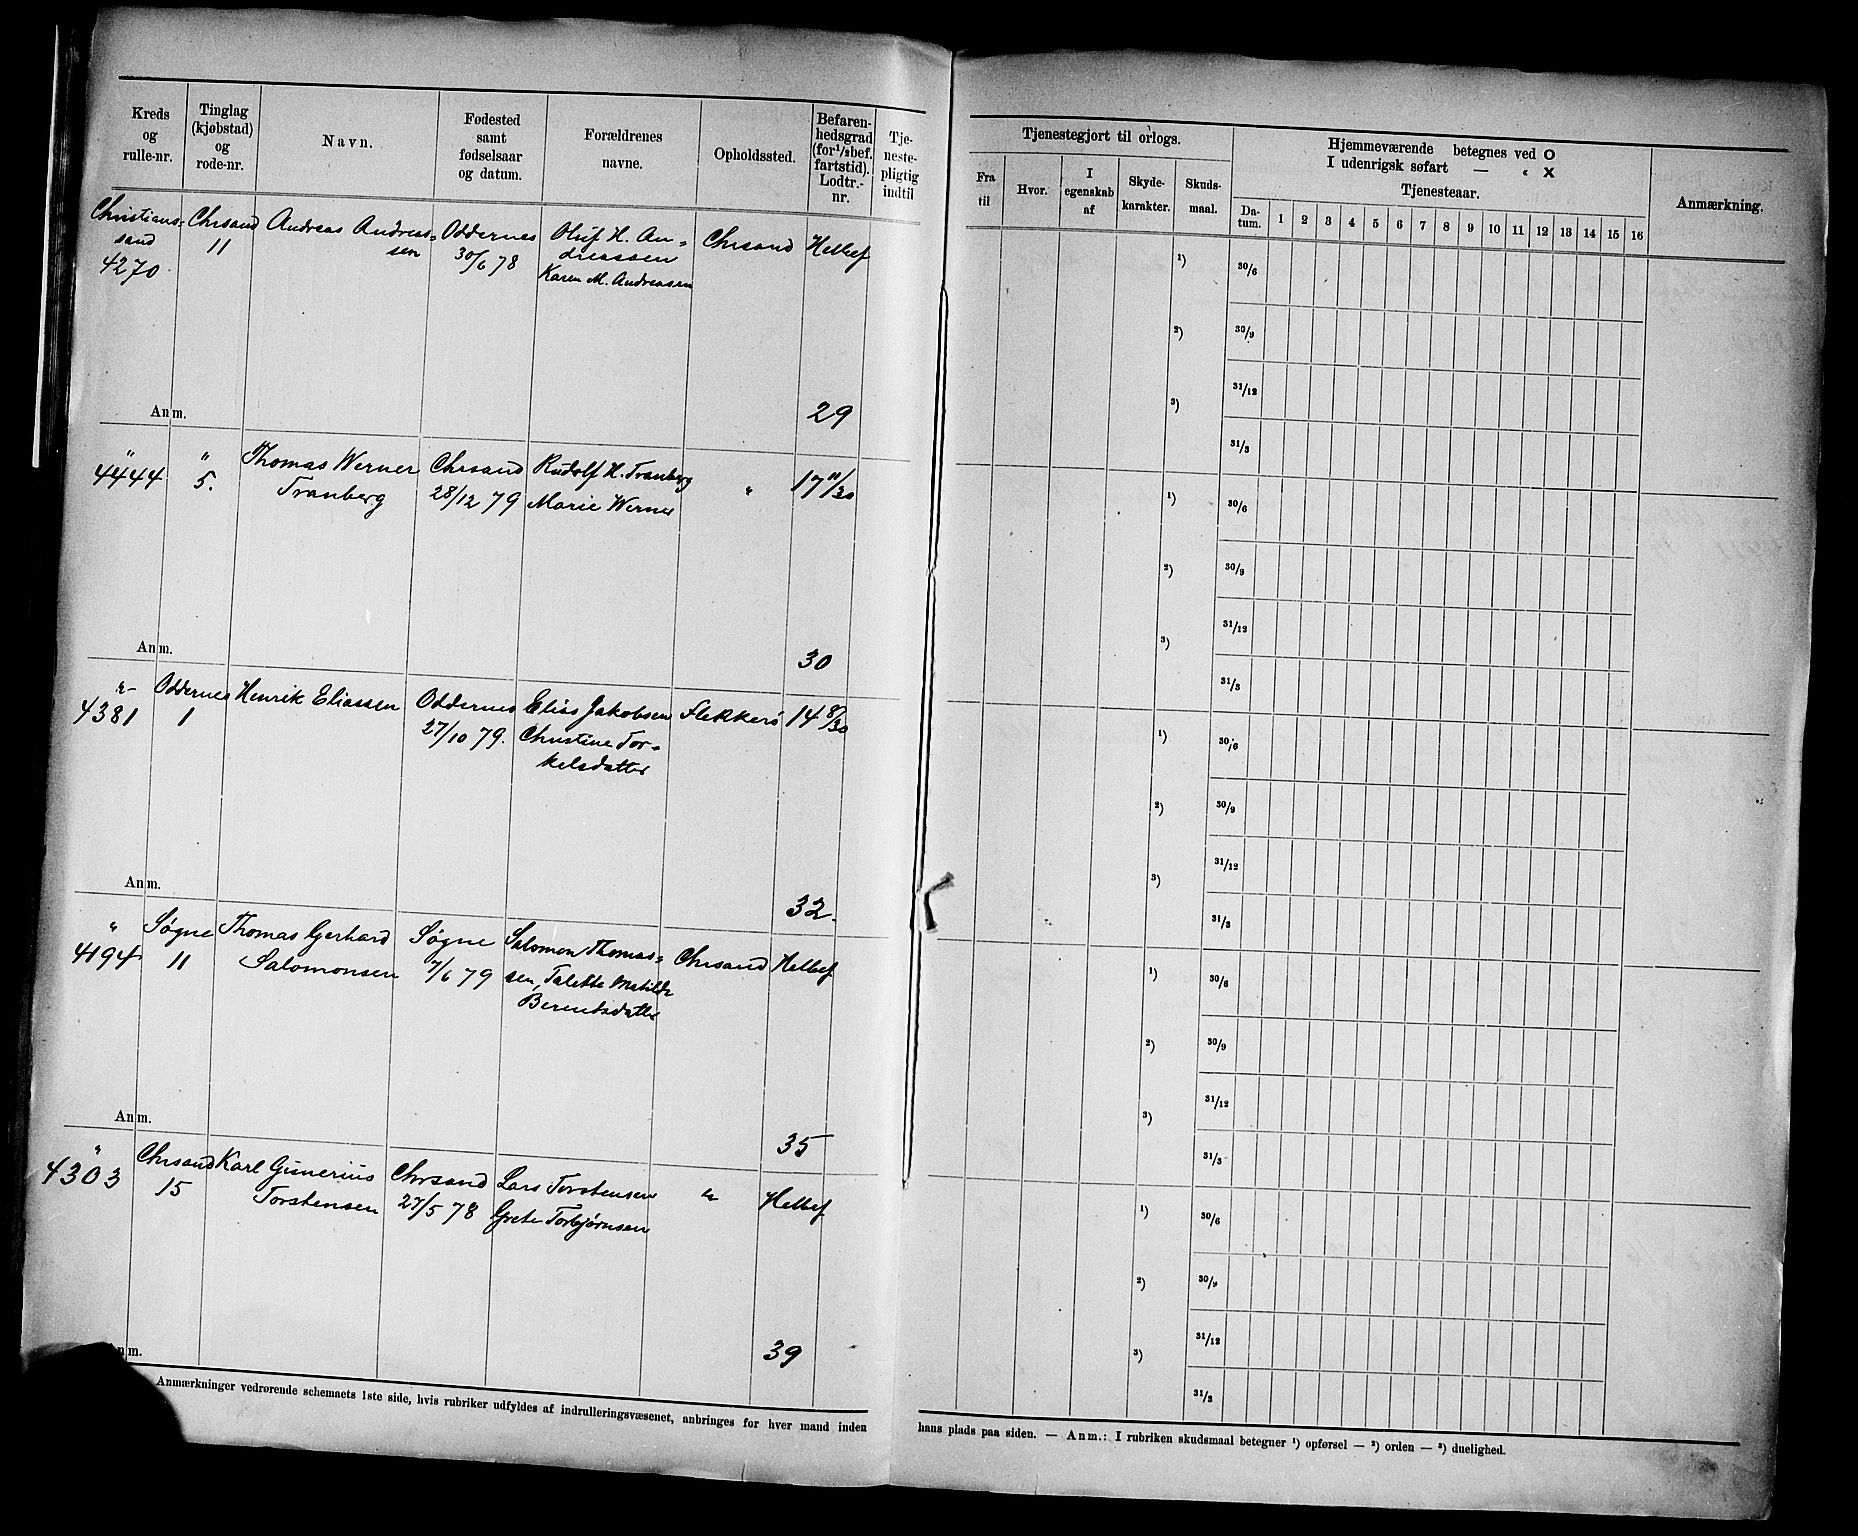 Kreds og rulle-nr.
Tinglag (kjøbstad) og rode-nr.
Navn.
Fødested samt fødselsaar og datum.
Forældrenes navne.
Opholdssted.
Befaren-hedsgrad (for 1/2 bef. fartstid). Lodtr.-nr.
Tje-neste-pligtig indtil
Christians-
sand
4270
Chrsand
11
Andreas Andreas-
sen
Oddernes
30/6 78
Oluf H. An-
dreassen
Karen M. Andreassen
Chrsand
Helbef
Anm.
29
"
4444
"
5.
Thomas Werner
Tranberg
Chrsand
28/12 79
Rudolf H. Tranberg
Marie Werner
"
17 11/30
Anm.
30
"
4381
Oddernes
1
Henrik Eliassen
Oddernes
27/10 79.
Elias Jakobsen
Christine Tor-
kelsdatter
Flekkerø
14 8/30
Anm.
32.
"
4194
Søgne
11
Thomas Gerhard
Salomonsen
Søgne
7/6 79
Salomon Thomas-
sen, Talette Matilde
Berentsdatter
Chrsand
Helbef
Anm.
35
"
4303
Chrsand
15
Karl Gunerius
Torstensen
Chrsand
27/5 78
Lars Torstensen
Grete Torbjørnsen
"
Helbef
nm.
39
Anmærkninger vedrørende schemaets 1ste side, hvis rubriker udfyldes af indrulleringsvæsenet, anbringes for hver mand inden
Tjenestegjort til orlogs.
Fra til
Hvor.
I egenskab af
Skyde-karakter.
Skuds-maal.
Hjemmeværende betegnes ved O
I udenrigsk søfart — " X
Tjenesteaar.
Da-tum.
1 2 3 4 5 6 7 8 9 10 11 12 13 14 15 16
Anmærkning.
1) 30/6
2) 30/9
31/12
3)
31/3
1) 30/6
2) 30/9
31/12
3)
31/3
1) 30/6
2) 30/9
31/12
3)
31/3
1) 30/6
2) 30/9
31/12
3)
31/3
1) 30/6
2) 30/9
31/12
3)
31/3
hans plads paa siden. — Anm.: I rubriken skudsmaal betegner 1) opførsel — 2) orden — 3) duelighed.